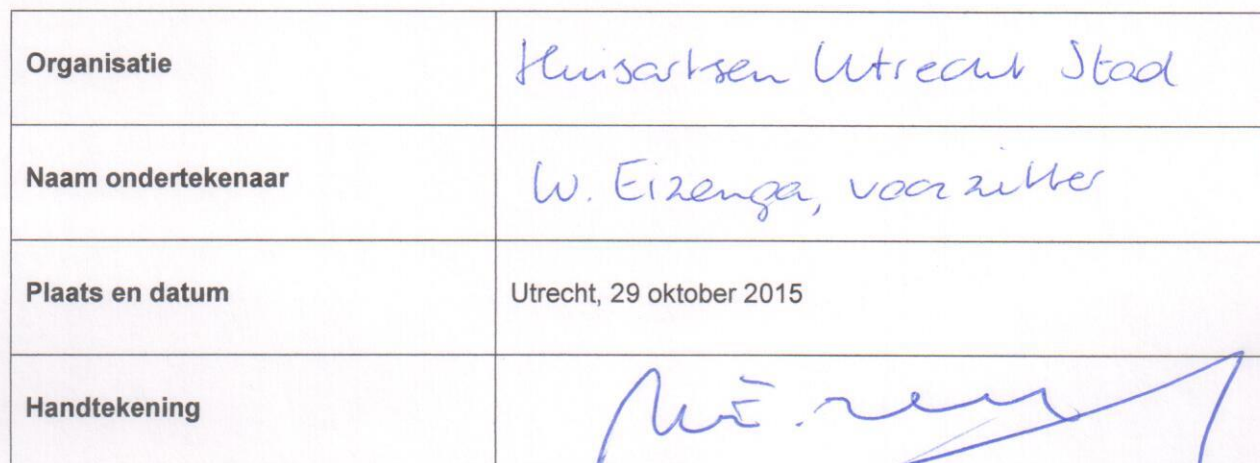 Organisatie Huisartsen Utrecht Stad
Naam ondertekenaar W. Eizenga, voorzitter
Plaats en datum Utrecht, 29 oktober 2015
Handtekening